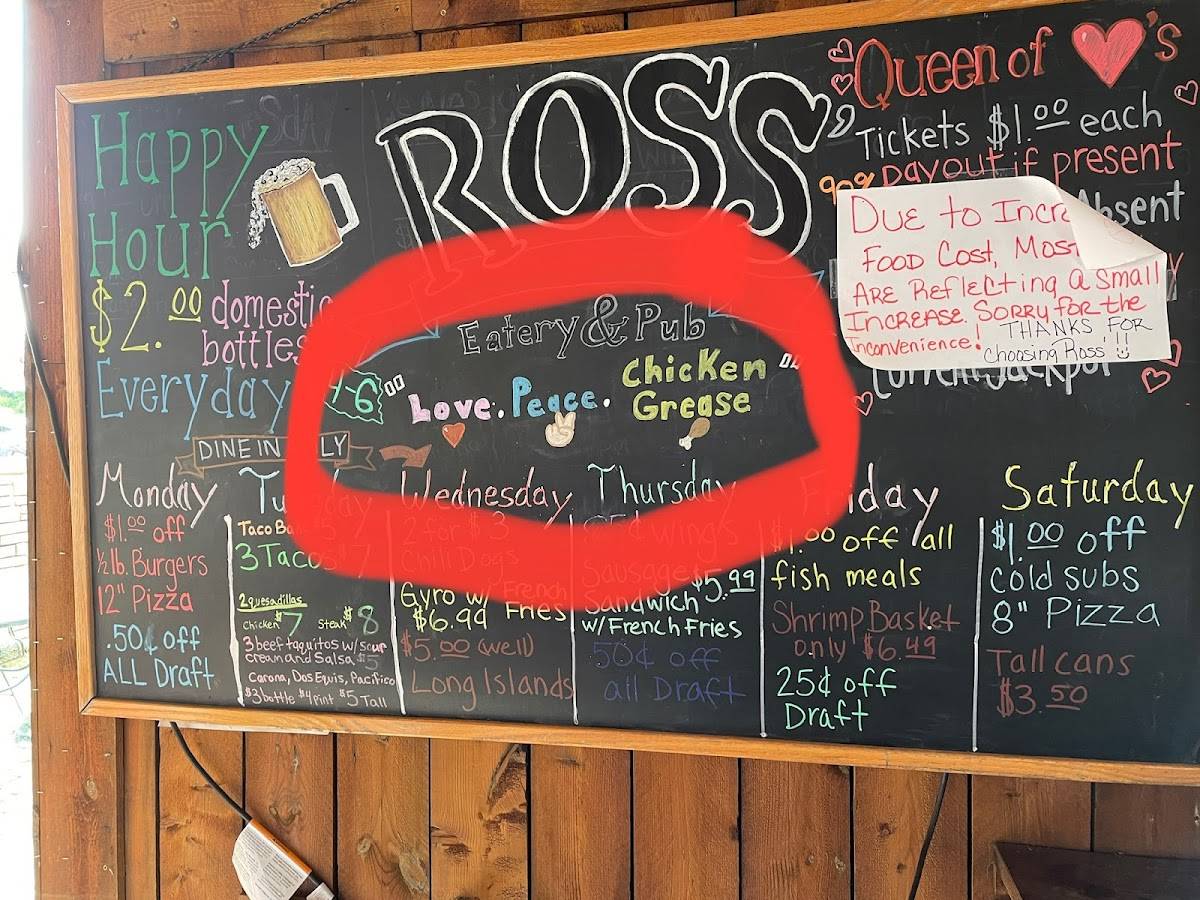 Happy
Hour
$2.00 domestic
bottles
Everyday
DINE IN
ROSS'
Eatery & Pub
"Love. Peace. Chicken
Grease"
Queen of ♥'s
Tickets $1.00 each
payout if present
Absent
Due to
Food Cost, Most
Are Reflecting a Small
Increase. Sorry for the
Inconvenience! THANKS FOR
Choosing Ross'!!
Current Jackpot
Monday
$1.00 off
½ lb. Burgers
12" Pizza
.50¢ off
ALL Draft
Tuesday
Taco
3 Tacos
2 quesadillas
Chicken $7 Steak $8
3 beef taquitos w/ sour
cream and Salsa $5
Corona, Dos Equis, Pacifico
$3 bottle $4 pint $5 Tall
Wednesday
2 for $3
Chili Dogs
Gyro w/ French
$6.99 Fries
$5.00 (well)
Long Islands
Thursday
Wings
Sausage $5.99
Sandwich
w/ French Fries
50¢ off
all Draft
Friday
$1.00 off all
fish meals
Shrimp Basket
only $6.49
25¢ off
Draft
Saturday
$1.00 off
cold subs
8" Pizza
Tall cans
$3.50